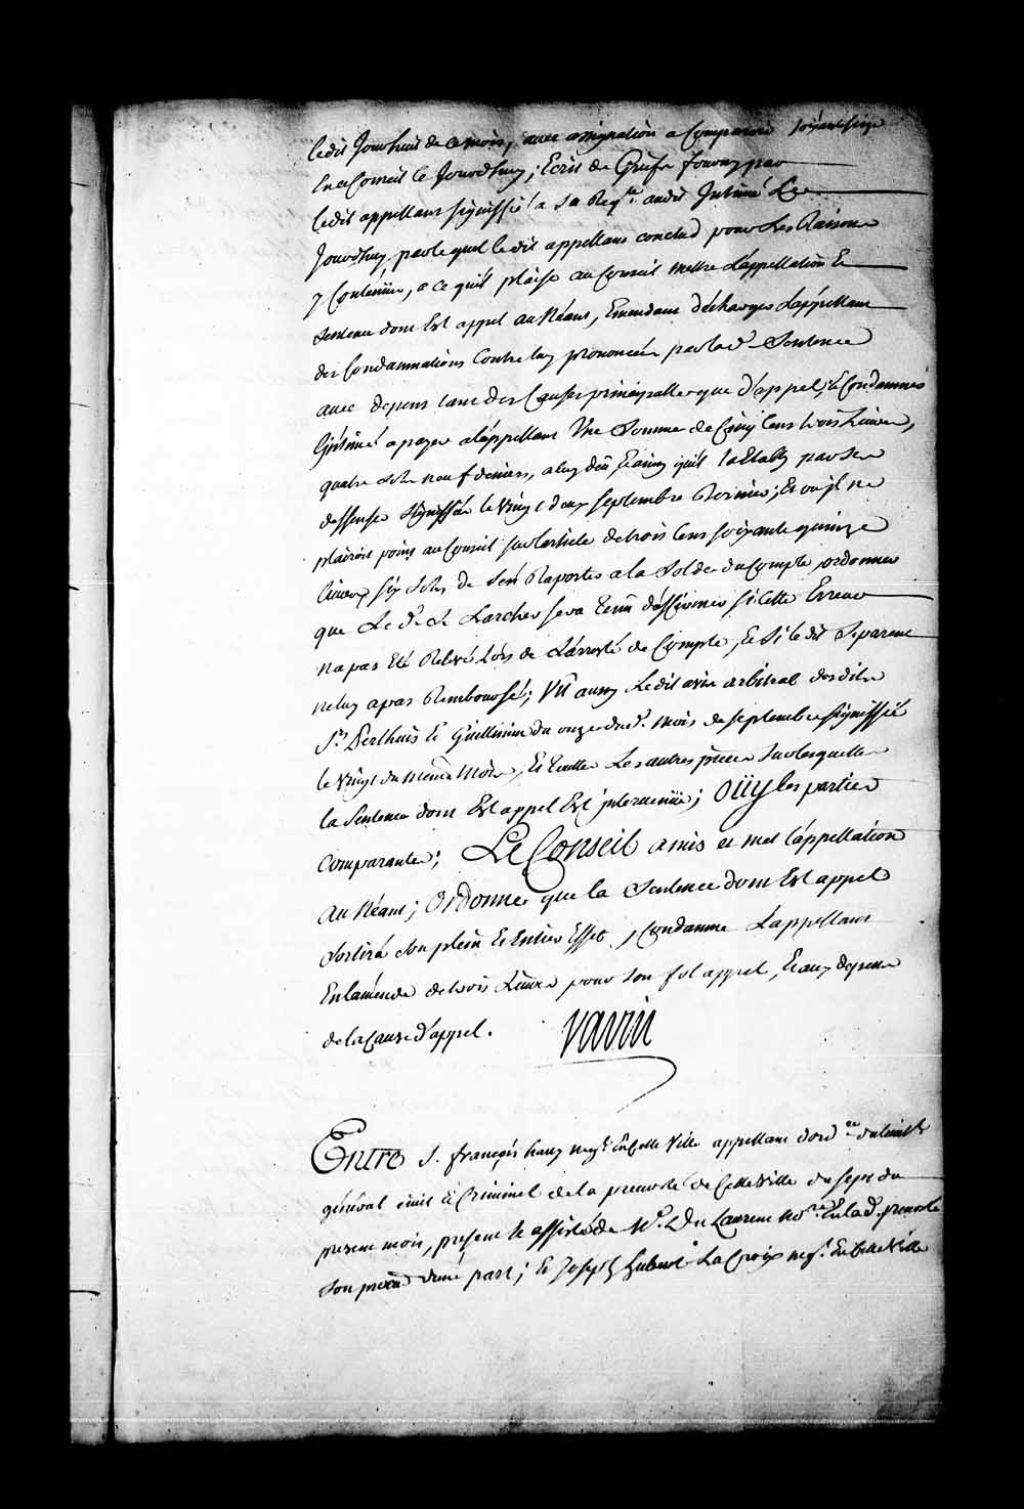 ledit Jour huit de ce mois, avec assignation a Comparoir
En ce Conseil Ce Jourdhuy; Ecrit de Griefs fourny par
ledit appellant signiffié a sa Reqte. audit Intimé Le
Jourdhuy, par lequel ledit appellant conclud pour Les Raisons
y Contenües, a ce qu'il plaise au Conseil mettre L'appellation Et
sentence dont Est appel au Néant, Emendant décharger L'appellant
des Condamnations Contre luy prononcées par lad. Sentence
avec depens tant des Causes principalles que d'appel, & Condamner
L'intimé a payer a L'appellant Une Somme de Cinq Cens trois Livres,
quatre sols neuf deniers, a luy dûe, Et ainsy qu'il l'a Etably par ses
deffenses signiffiées le vingt deux septembre Dernier; Et ou jl ne
plairoit point au Conseil sur l'article de trois Cens soixante quinze
livres six sols, de s'en Raporter a la Solde du Compte, ordonner
que Le d. S. Larcher sera tenu d'affirmer si Cette Erreur
n'a pas Eté Relevé Lors de L'arresté de Compte, Et si le dit Deparene
ne luy a pas Remboursé; Vû aussy Ledit avis arbitral desdits
Srs. Perthuis Et Guillimin du onze dud. mois de septembre signiffié
le Vingt du même Mois, Et Toutes Les autres pieces sur lesquelles
la sentence dont Est appel Est jntervenüe; Oüy les parties
comparantes; Le Conseil a mis et met l'appellation
au Néant; Ordonne que la Sentence dont Est appel
Sortira son plein Et Entier Effet, Condamne L'appellant
En l'amende de trois Livres pour son fol appel, Et aux depens
de la Cause d'appel.
Varin
Entre S. françois havy negt. En Cette Ville appellant d'ordce. du Lieutt.
général Civil Et Criminel de la prevosté de Cette Ville du sept du
present mois, present Et assisté de Me. Du Laurent nore. En lad. prevosté
son procur. d'une part; Et Joseph La Croix negt. En Cette Ville